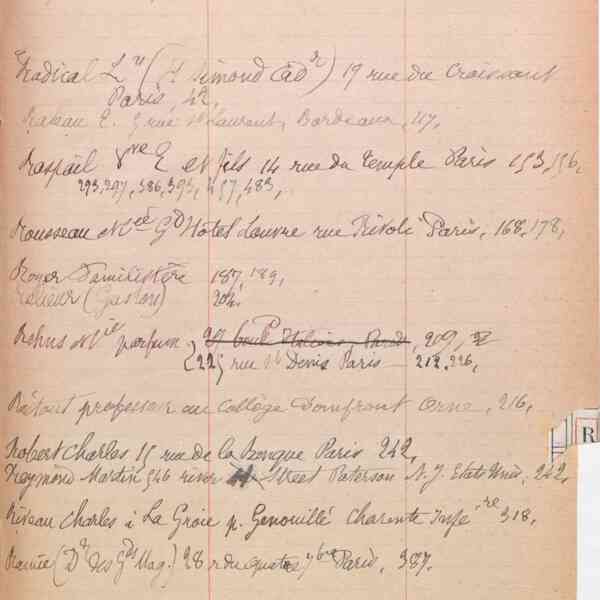 Radical Le (H Simond Adr) 19 rue du Croissant
Paris, 42,
Rateau E. 9 rue St Laurent, Bordeaux, 117,
Raspail Vve E et fils 14 rue du Temple Paris 153, 156,
293, 297, 386, 395, 457, 483,
Rousseau Gd Hôtel Louvre rue Rivoli Paris, 168, 178,
Royer Familistère 187, 189,
(Gaston) 204,
Rehns & Cie parfum. 29 boul Italiens, Paris, 209,
22, rue St Denis Paris 212, 226,
professeur au Collège Domfront Orne, 216,
Robert Charles 15 rue de la Paris 242,
Reymond Martin 546 river Street Paterson N. J. Etats Unis, 242,
Riseau Charles à La Groie p. Genouillé Charente Infe re 318,
(Dr des Gds Mag.) 28 r du quatre 7bre Paris, 387.
R